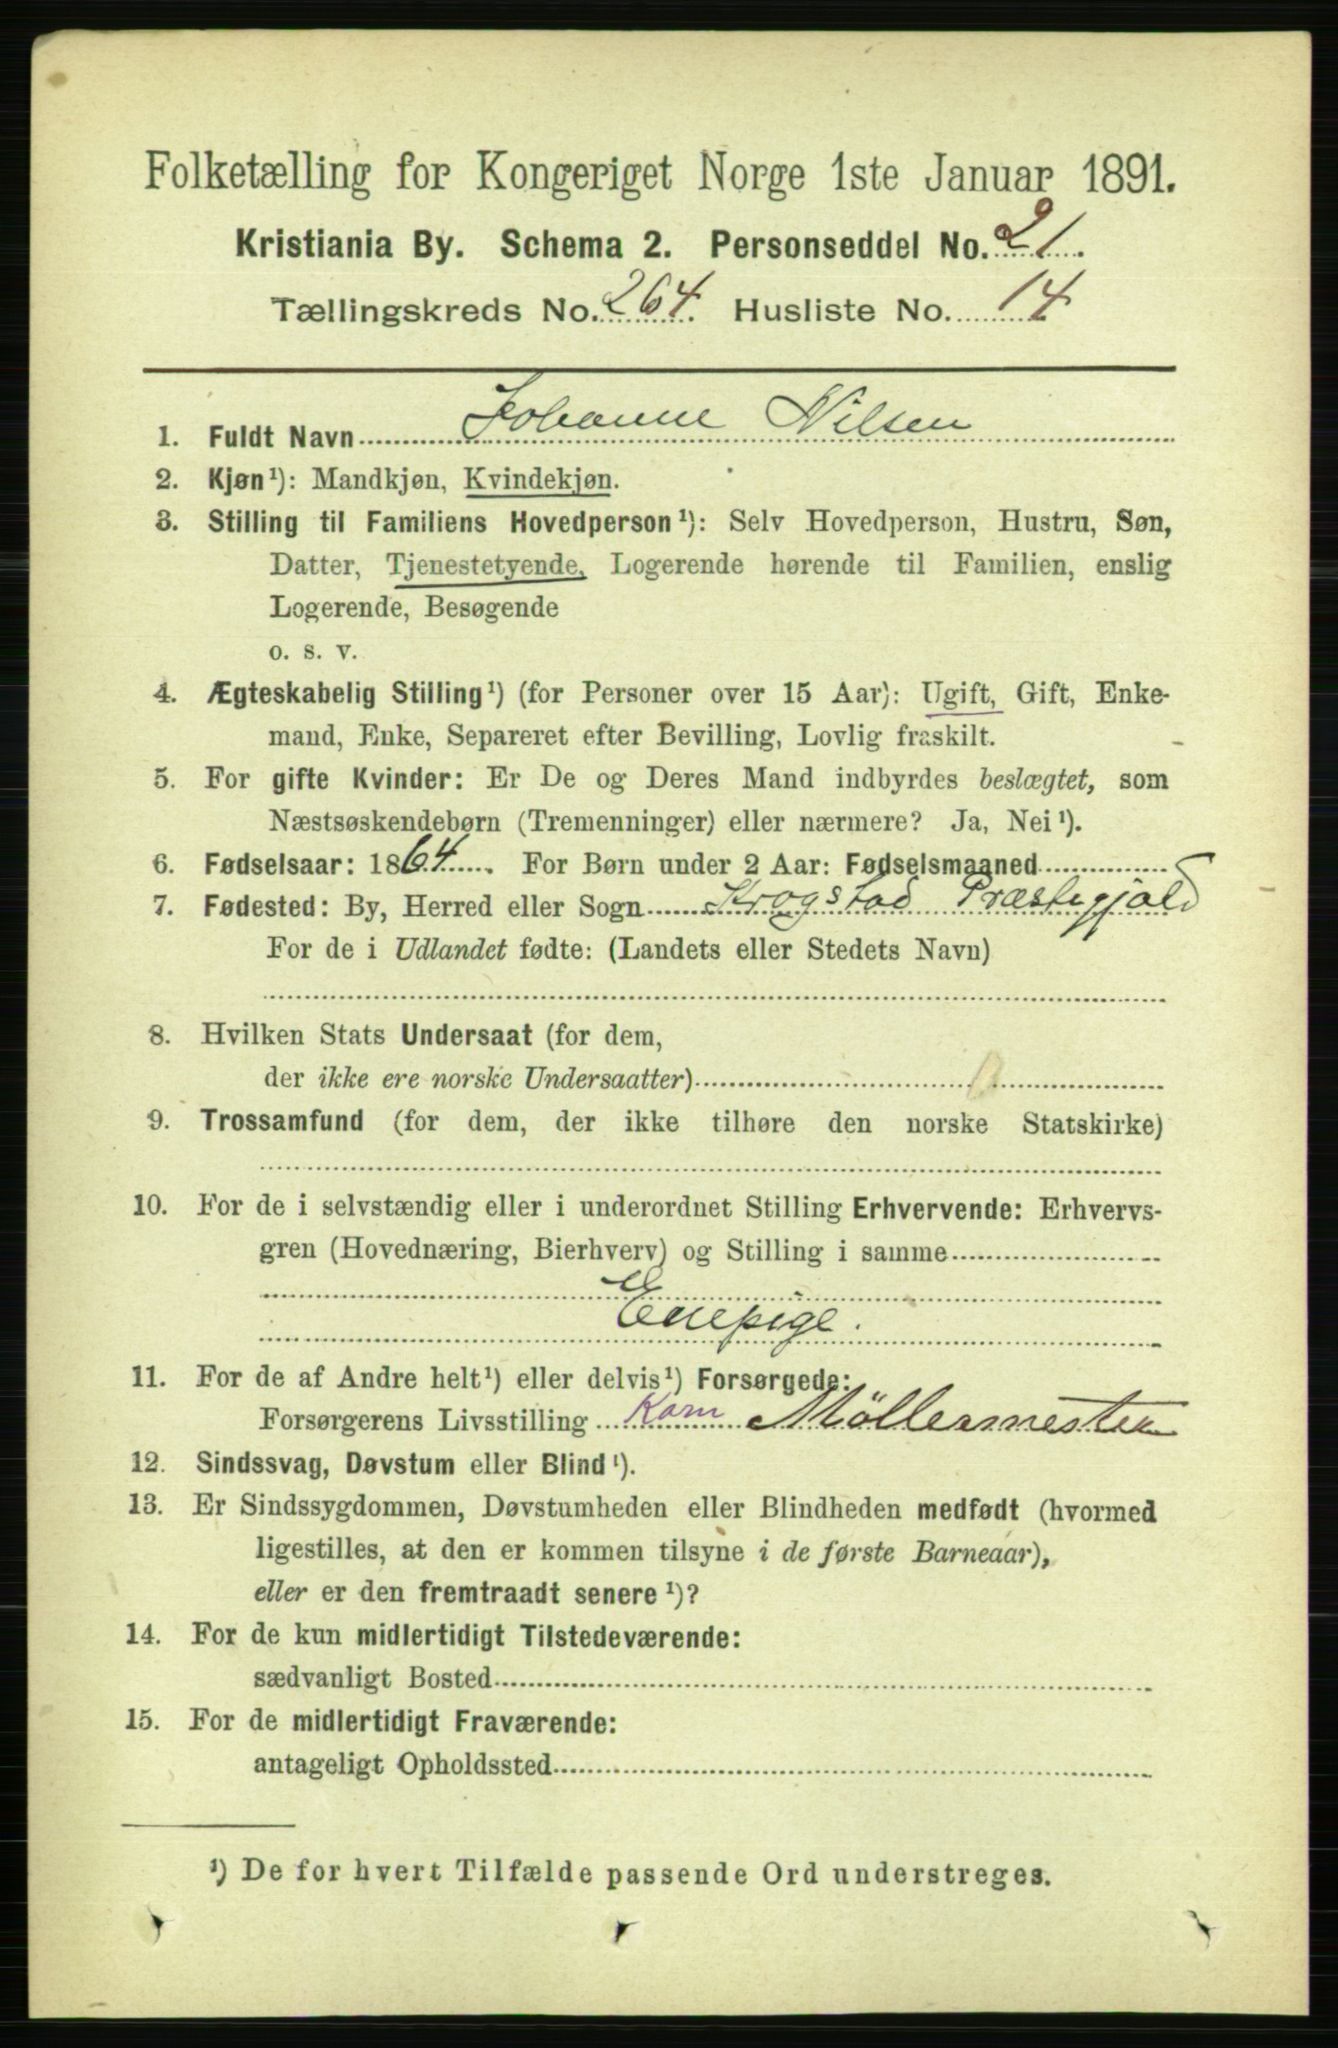 Folketælling for Kongeriget Norge 1ste Januar 1891.
Kristiania By. Schema 2. Personseddel No. 21.
Tællingskreds No. 264. Husliste No. 14
1. Fuldt Navn Johanne Nilsen
2. Kjøn¹): Mandkjøn, Kvindekjøn.
3. Stilling til Familiens Hovedperson¹): Selv Hovedperson, Hustru, Søn,
Datter, Tjenestetyende, Logerende hørende til Familien, enslig
Logerende, Besøgende
o. s. v.
4. Ægteskabelig Stilling¹) (for Personer over 15 Aar): Ugift, Gift, Enke-
mand, Enke, Separeret efter Bevilling, Lovlig fraskilt.
5. For gifte Kvinder: Er De og Deres Mand indbyrdes beslægtet, som
Næstsøskendebørn (Tremenninger) eller nærmere? Ja, Nei¹).
6. Fødselsaar: 1864. For Børn under 2 Aar: Fødselsmaaned
7. Fødested: By, Herred eller Sogn Krogstad Præstegjæld
For de i Udlandet fødte: (Landets eller Stedets Navn)
8. Hvilken Stats Undersaat (for dem,
der ikke ere norske Undersaatter)
9. Trossamfund (for dem, der ikke tilhøre den norske Statskirke)
10. For de i selvstændig eller i underordnet Stilling Erhvervende: Erhvervs-
gren (Hovednæring, Bierhverv) og Stilling i samme
Enepige.
11. For de af Andre helt¹) eller delvis¹) Forsørgede:
Forsørgerens Livsstilling Korn Möllermester
12. Sindssvag, Døvstum eller Blind¹).
13. Er Sindssygdommen, Døvstumheden eller Blindheden medfødt (hvormed
ligestilles, at den er kommen tilsyne i de første Barneaar),
eller er den fremtraadt senere¹)?
14. For de kun midlertidigt Tilstedeværende:
sædvanligt Bosted
15. For de midlertidigt Fraværende:
antageligt Opholdssted
¹) De for hvert Tilfælde passende Ord understreges.